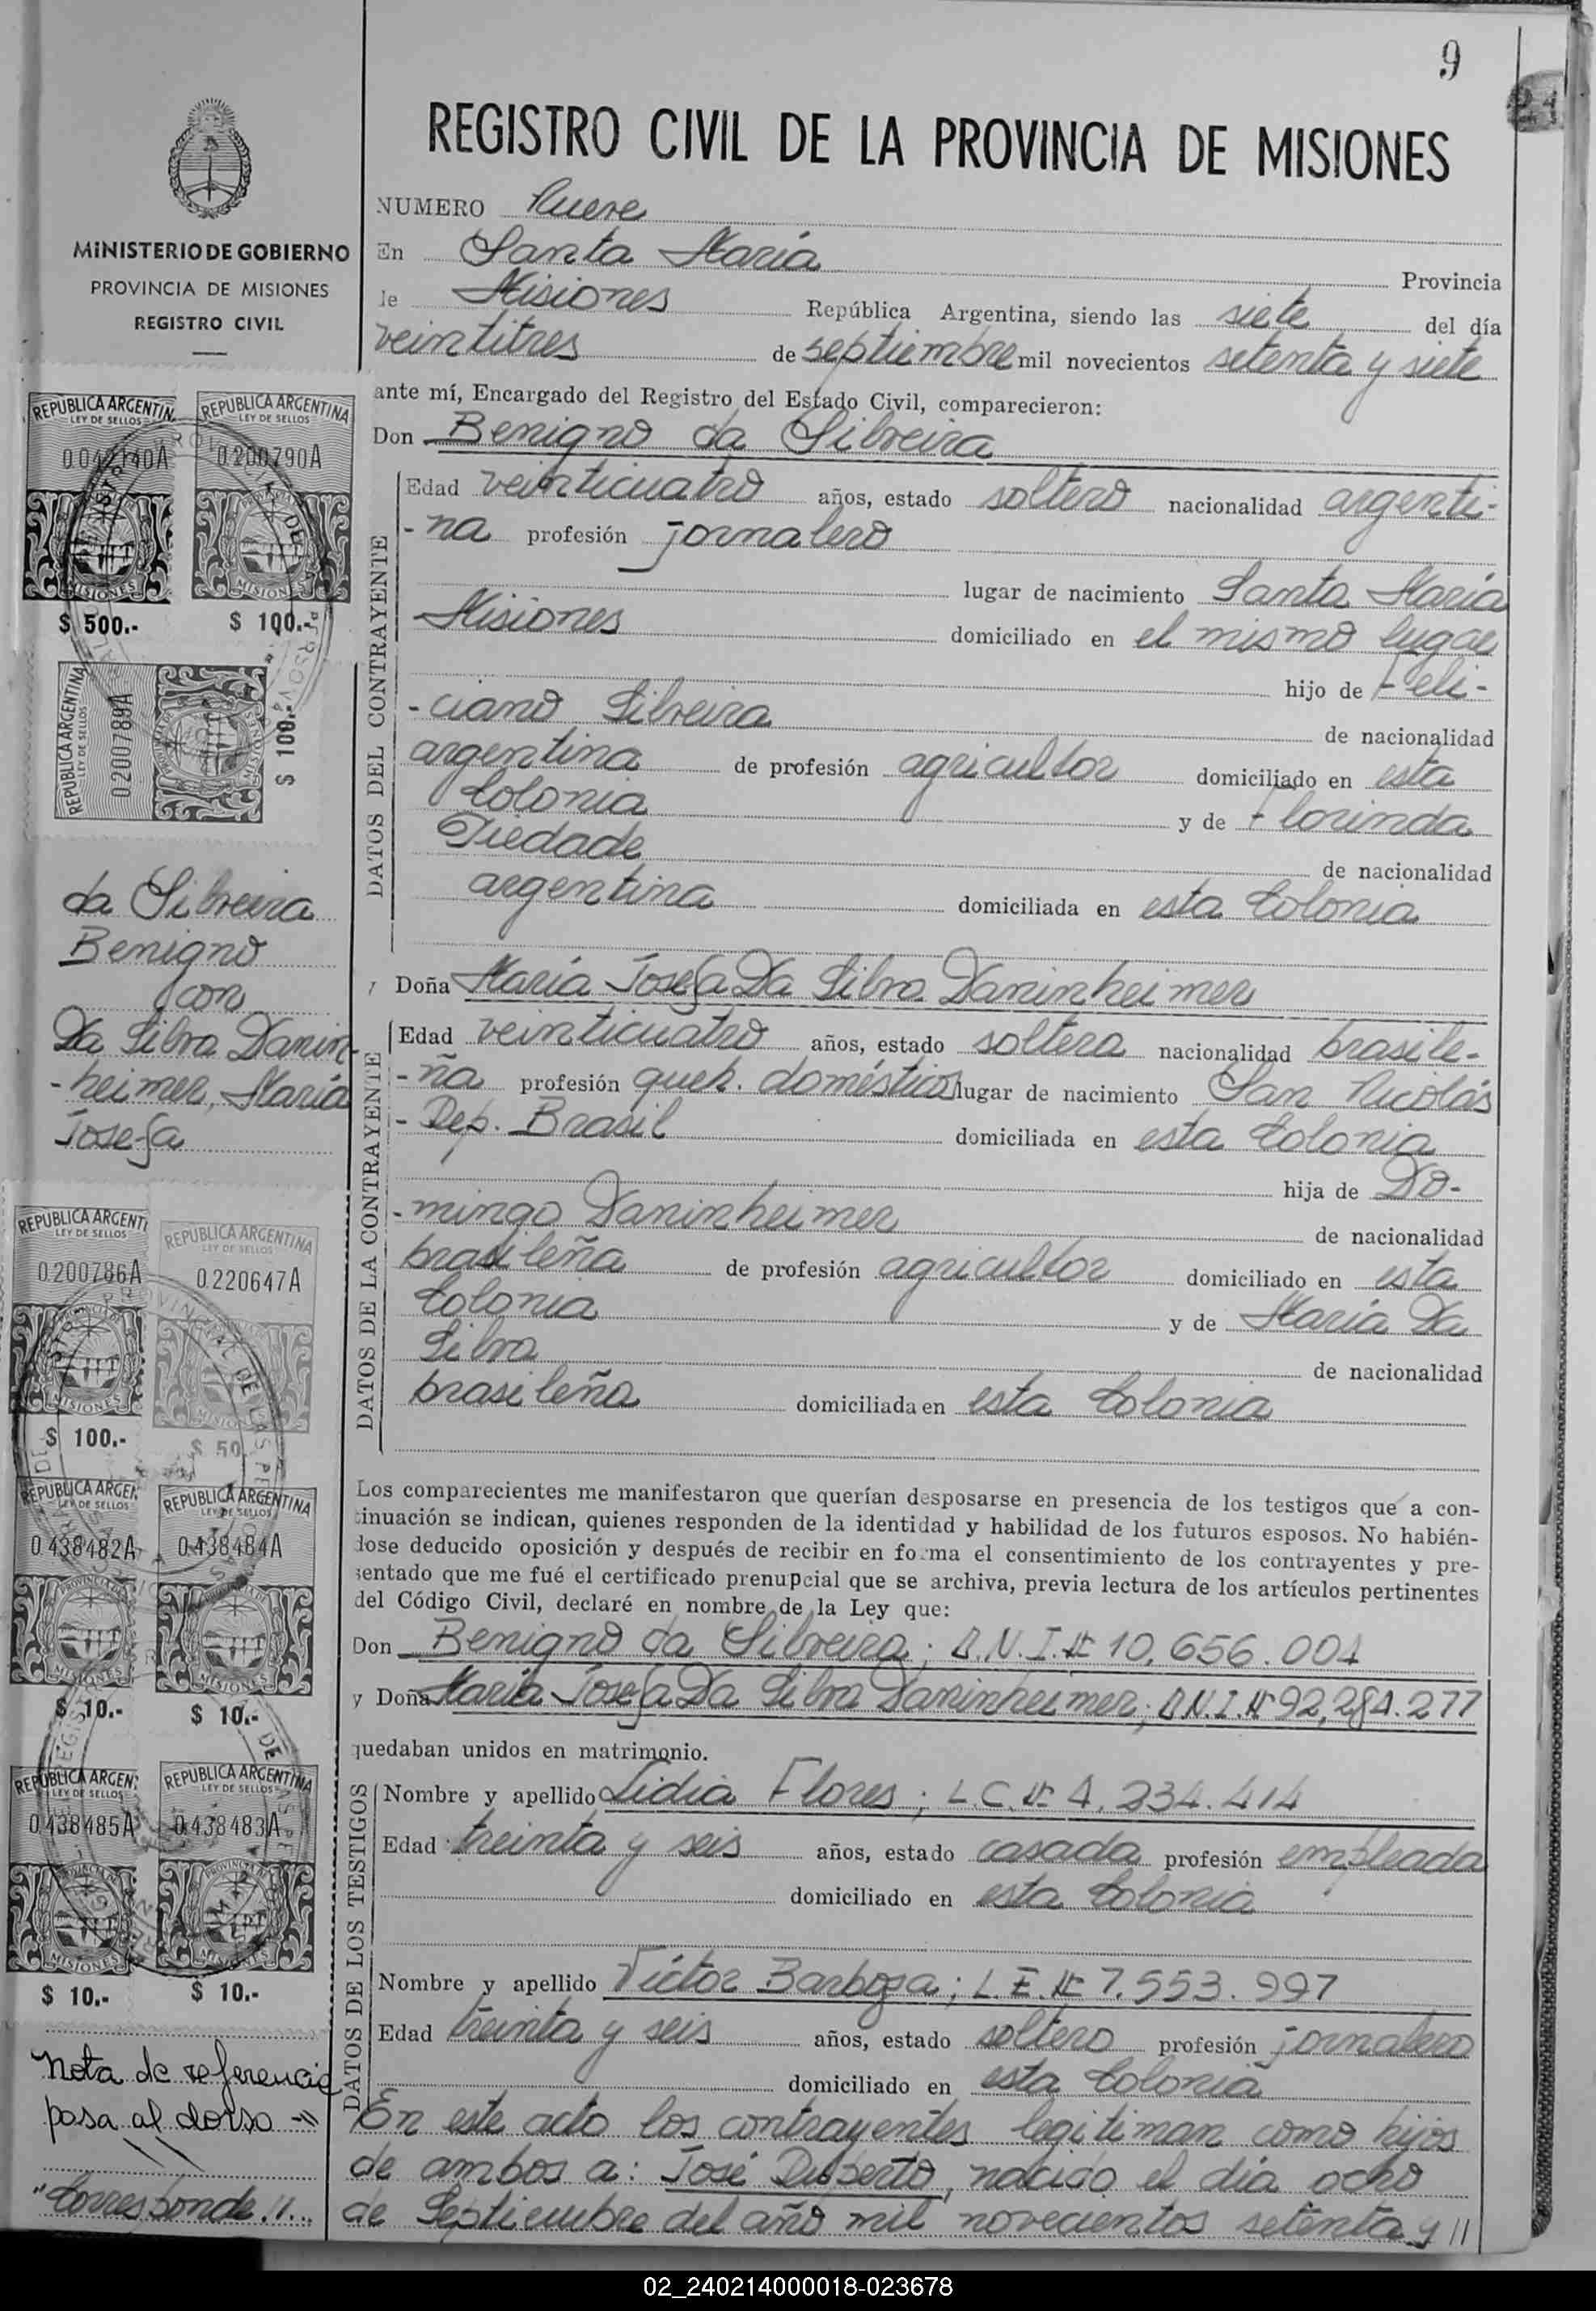 9
REGISTRO CIVIL DE LA PROVINCIA DE MISIONES
MINISTERIO DE GOBIERNO
PROVINCIA DE MISIONES
REGISTRO CIVIL
NUMERO Nueve
En Santa María Provincia
de Misiones República Argentina, siendo las siete del día
veintitres de septiembre mil novecientos setenta y siete
ante mí, Encargado del Registro del Estado Civil, comparecieron:
Don Benigno da Silveira
DATOS DEL CONTRAYENTE
Edad veinticuatro años, estado soltero nacionalidad argenti-
-na profesión jornalero
lugar de nacimiento Santa María
Misiones domiciliado en el mismo lugar
hijo de Feli-
-ciano Silveira de nacionalidad
argentina de profesión agricultor domiciliado en esta
Colonia y de Florinda
Piedade de nacionalidad
argentina domiciliada en esta Colonia
y Doña María Josefa Da Silva Daninheimer
DATOS DE LA CONTRAYENTE
Edad veinticuatro años, estado soltera nacionalidad brasile-
-ña profesión queh. domésticos lugar de nacimiento San Nicolás
- Dep. Brasil domiciliada en esta Colonia
hija de Do-
-mingo Daninheimer de nacionalidad
brasileña de profesión agricultor domiciliado en esta
Colonia y de María Da
Silva de nacionalidad
brasileña domiciliada en esta Colonia
Los comparecientes me manifestaron que querían desposarse en presencia de los testigos que a con-
tinuación se indican, quienes responden de la identidad y habilidad de los futuros esposos. No habién-
dose deducido oposición y después de recibir en forma el consentimiento de los contrayentes y pre-
sentado que me fué el certificado prenupcial que se archiva, previa lectura de los artículos pertinentes
del Código Civil, declaré en nombre de la Ley que:
Don Benigno da Silveira; D.N.I.Nº 10.656.001
y Doña María Josefa Da Silva Daninheimer; D.N.I.Nº 92.284.277
quedaban unidos en matrimonio.
DATOS DE LOS TESTIGOS
Nombre y apellido Lidia Flores; L.C.Nº 4.234.414
Edad treinta y seis años, estado casada profesión empleada
domiciliado en esta Colonia
Nombre y apellido Victor Barboza; L.E.Nº 7.553.997
Edad treinta y seis años, estado soltero profesión jornalero
domiciliado en esta Colonia
En este acto los contrayentes legitiman como hijos
de ambos a: José Duberto, nacido el día ocho
de Septiembre del año mil novecientos setenta y //
REPUBLICA ARGENTINA
LEY DE SELLOS
MISIONES
$ 500.-
REPUBLICA ARGENTINA
LEY DE SELLOS
0.200790A
MISIONES
$ 100.-
REPUBLICA ARGENTINA
LEY DE SELLOS
0.200789A
MISIONES
$ 100.-
da Silveira
Benigno
con
Da Silva Danin-
-heimer, María
Josefa
REPUBLICA ARGENTI
LEY DE SELLOS
0.200786A
MISIONES
$ 100.-
REPUBLICA ARGENTINA
LEY DE SELLOS
0.220647A
MISIONES
$ 50.-
REPUBLICA ARGEN
LEY DE SELLOS
0.438482A
MISIONES
$ 10.-
REPUBLICA ARGENTINA
LEY DE SELLOS
0.438484A
MISIONES
$ 10.-
REPUBLICA ARGENT
LEY DE SELLOS
0.438485A
MISIONES
$ 10.-
REPUBLICA ARGENTINA
LEY DE SELLOS
0.438483A
MISIONES
$ 10.-
Nota de referencia
pasa al dorso -//
"Corresponde"//...
02_240214000018-023678